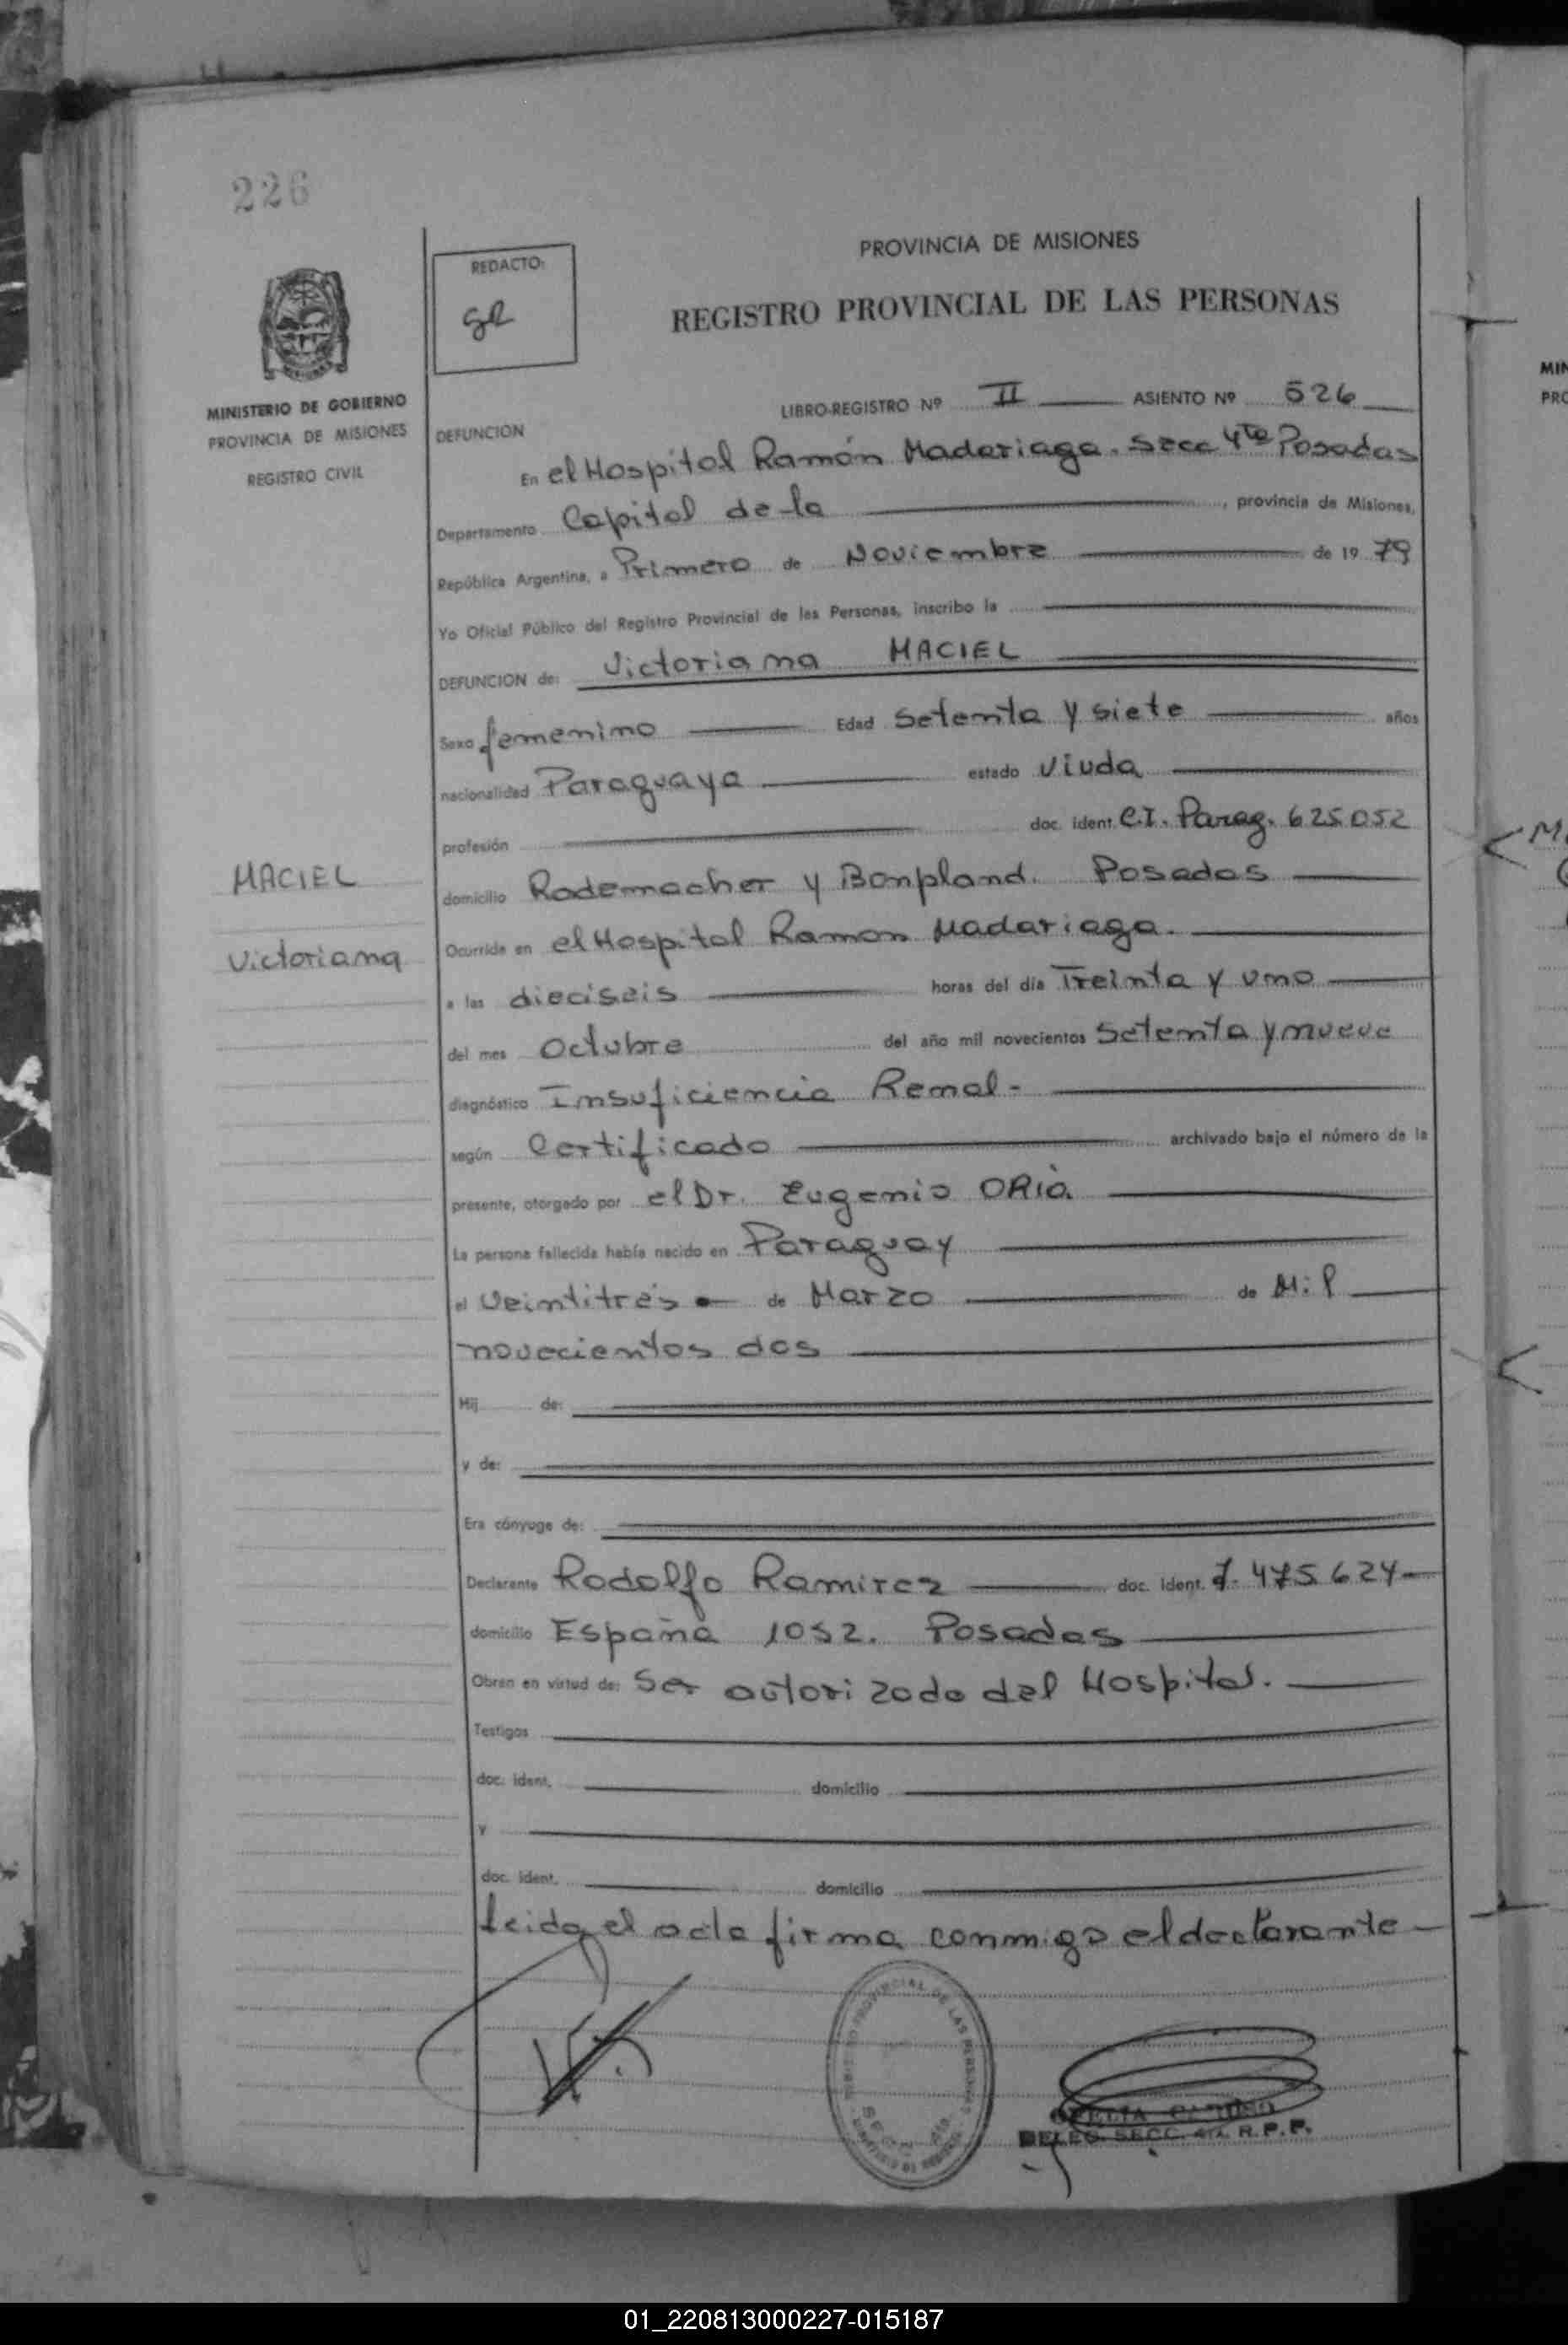 226
PROVINCIA DE MISIONES
REDACTO:
REGISTRO PROVINCIAL DE LAS PERSONAS
MINISTERIO DE GOBIERNO
PROVINCIA DE MISIONES
REGISTRO CIVIL
LIBRO-REGISTRO Nº II ASIENTO Nº 526
DEFUNCION
En el Hospital Ramón Madariaga. Secc 4ta Posadas
Departamento Capital de la, provincia de Misiones,
República Argentina, a Primero de Noviembre de 19 79
Yo Oficial Público del Registro Provincial de las Personas, inscribo la
DEFUNCION de: Victoriana MACIEL
Sexo femenino Edad Setenta y siete años
nacionalidad Paraguaya estado Viuda
profesión doc. ident. C.I. Parag. 625052
MACIEL
domicilio Rademacher y Bonpland. Posadas
Victoriana
Ocurrida en el Hospital Ramon Madariaga.
a las dieciseis horas del día Treinta y uno
del mes Octubre del año mil novecientos Setenta y nueve
diagnóstico Insuficiencia Renal-
según Certificado archivado bajo el número de la
presente, otorgado por el Dr. Eugenio ORIA.
La persona fallecida había nacido en Paraguay
el Veintitrés de Marzo de Mil
novecientos dos
Hij de:
y de:
Era cónyuge de:
Declarante Rodolfo Ramirez doc. ident. 7.475.624
domicilio España 1052. Posadas
Obran en virtud de: Ser autorizado del Hospital.
Testigos
doc. ident. domicilio
y
doc. ident. domicilio
Leida el acta firma conmigo el declarante
DELEG. SECC. 4ta. R.P.P.
MIN
PRO
01_220813000227-015187